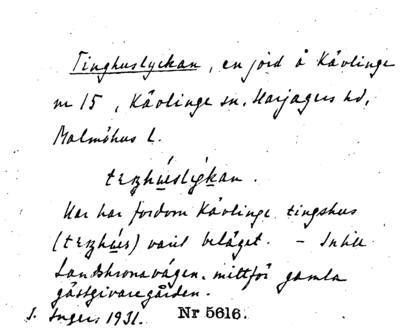 Tinghuslyckan, en jord å Kävlinge
nr 15, Kävlinge sn, Harjagers hd,
Malmöhus l.
teŋhúslýkan.
Här har fordom Kävlinge tingshus
(teŋhús) varit beläget. – Intill
Landskronavägen, mittför gamla
gästgivaregården.
S. Inger, 1931. Nr 5616.